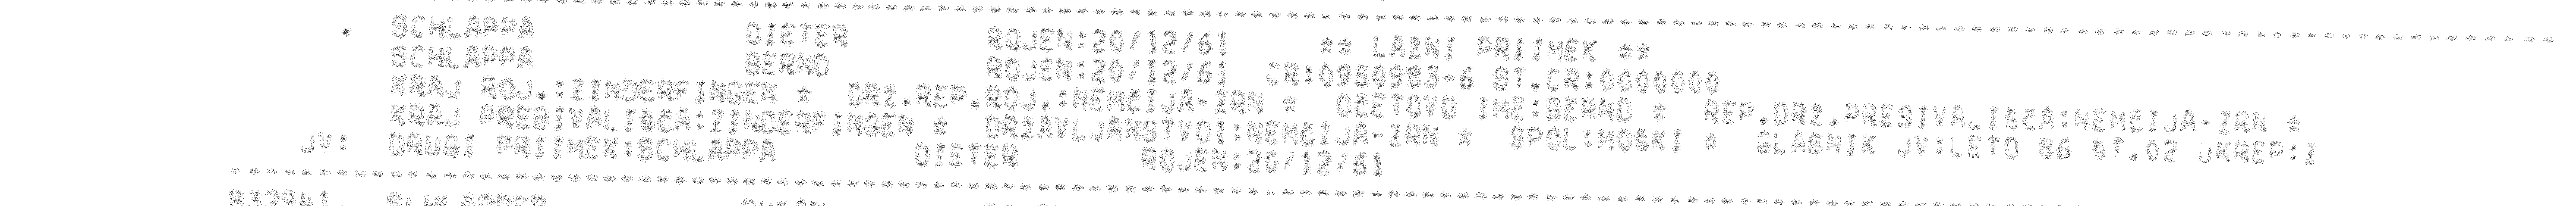 SCHLAPPA DIETER ROJEN:20/12/61 ** LAZNI PRIIMEK **
SCHLAPPA BERND ROJEN:20/12/61 CR:0950983-6 ST.CR:0600000
KRAJ ROJ.:ZINDERFINGEN * DRZ.REP.ROJ.:NEMCIJA-ZRN * OCETOVO IME:BERND * REP.DRZ.PRESIVALISCA:NEMCIJA-ZRN *
KRAJ PREBIVALISCA:ZINDERFINGEN * DRZAVLJANSTVO1:NEMCIJA-ZRN * SPOL:MOSKI * GLASNIK JV:LETO 86 ST.02 UKREP:1
JV: DRUGI PRIIMEK:SCHLAPPA DIETER ROJEN:20/12/61